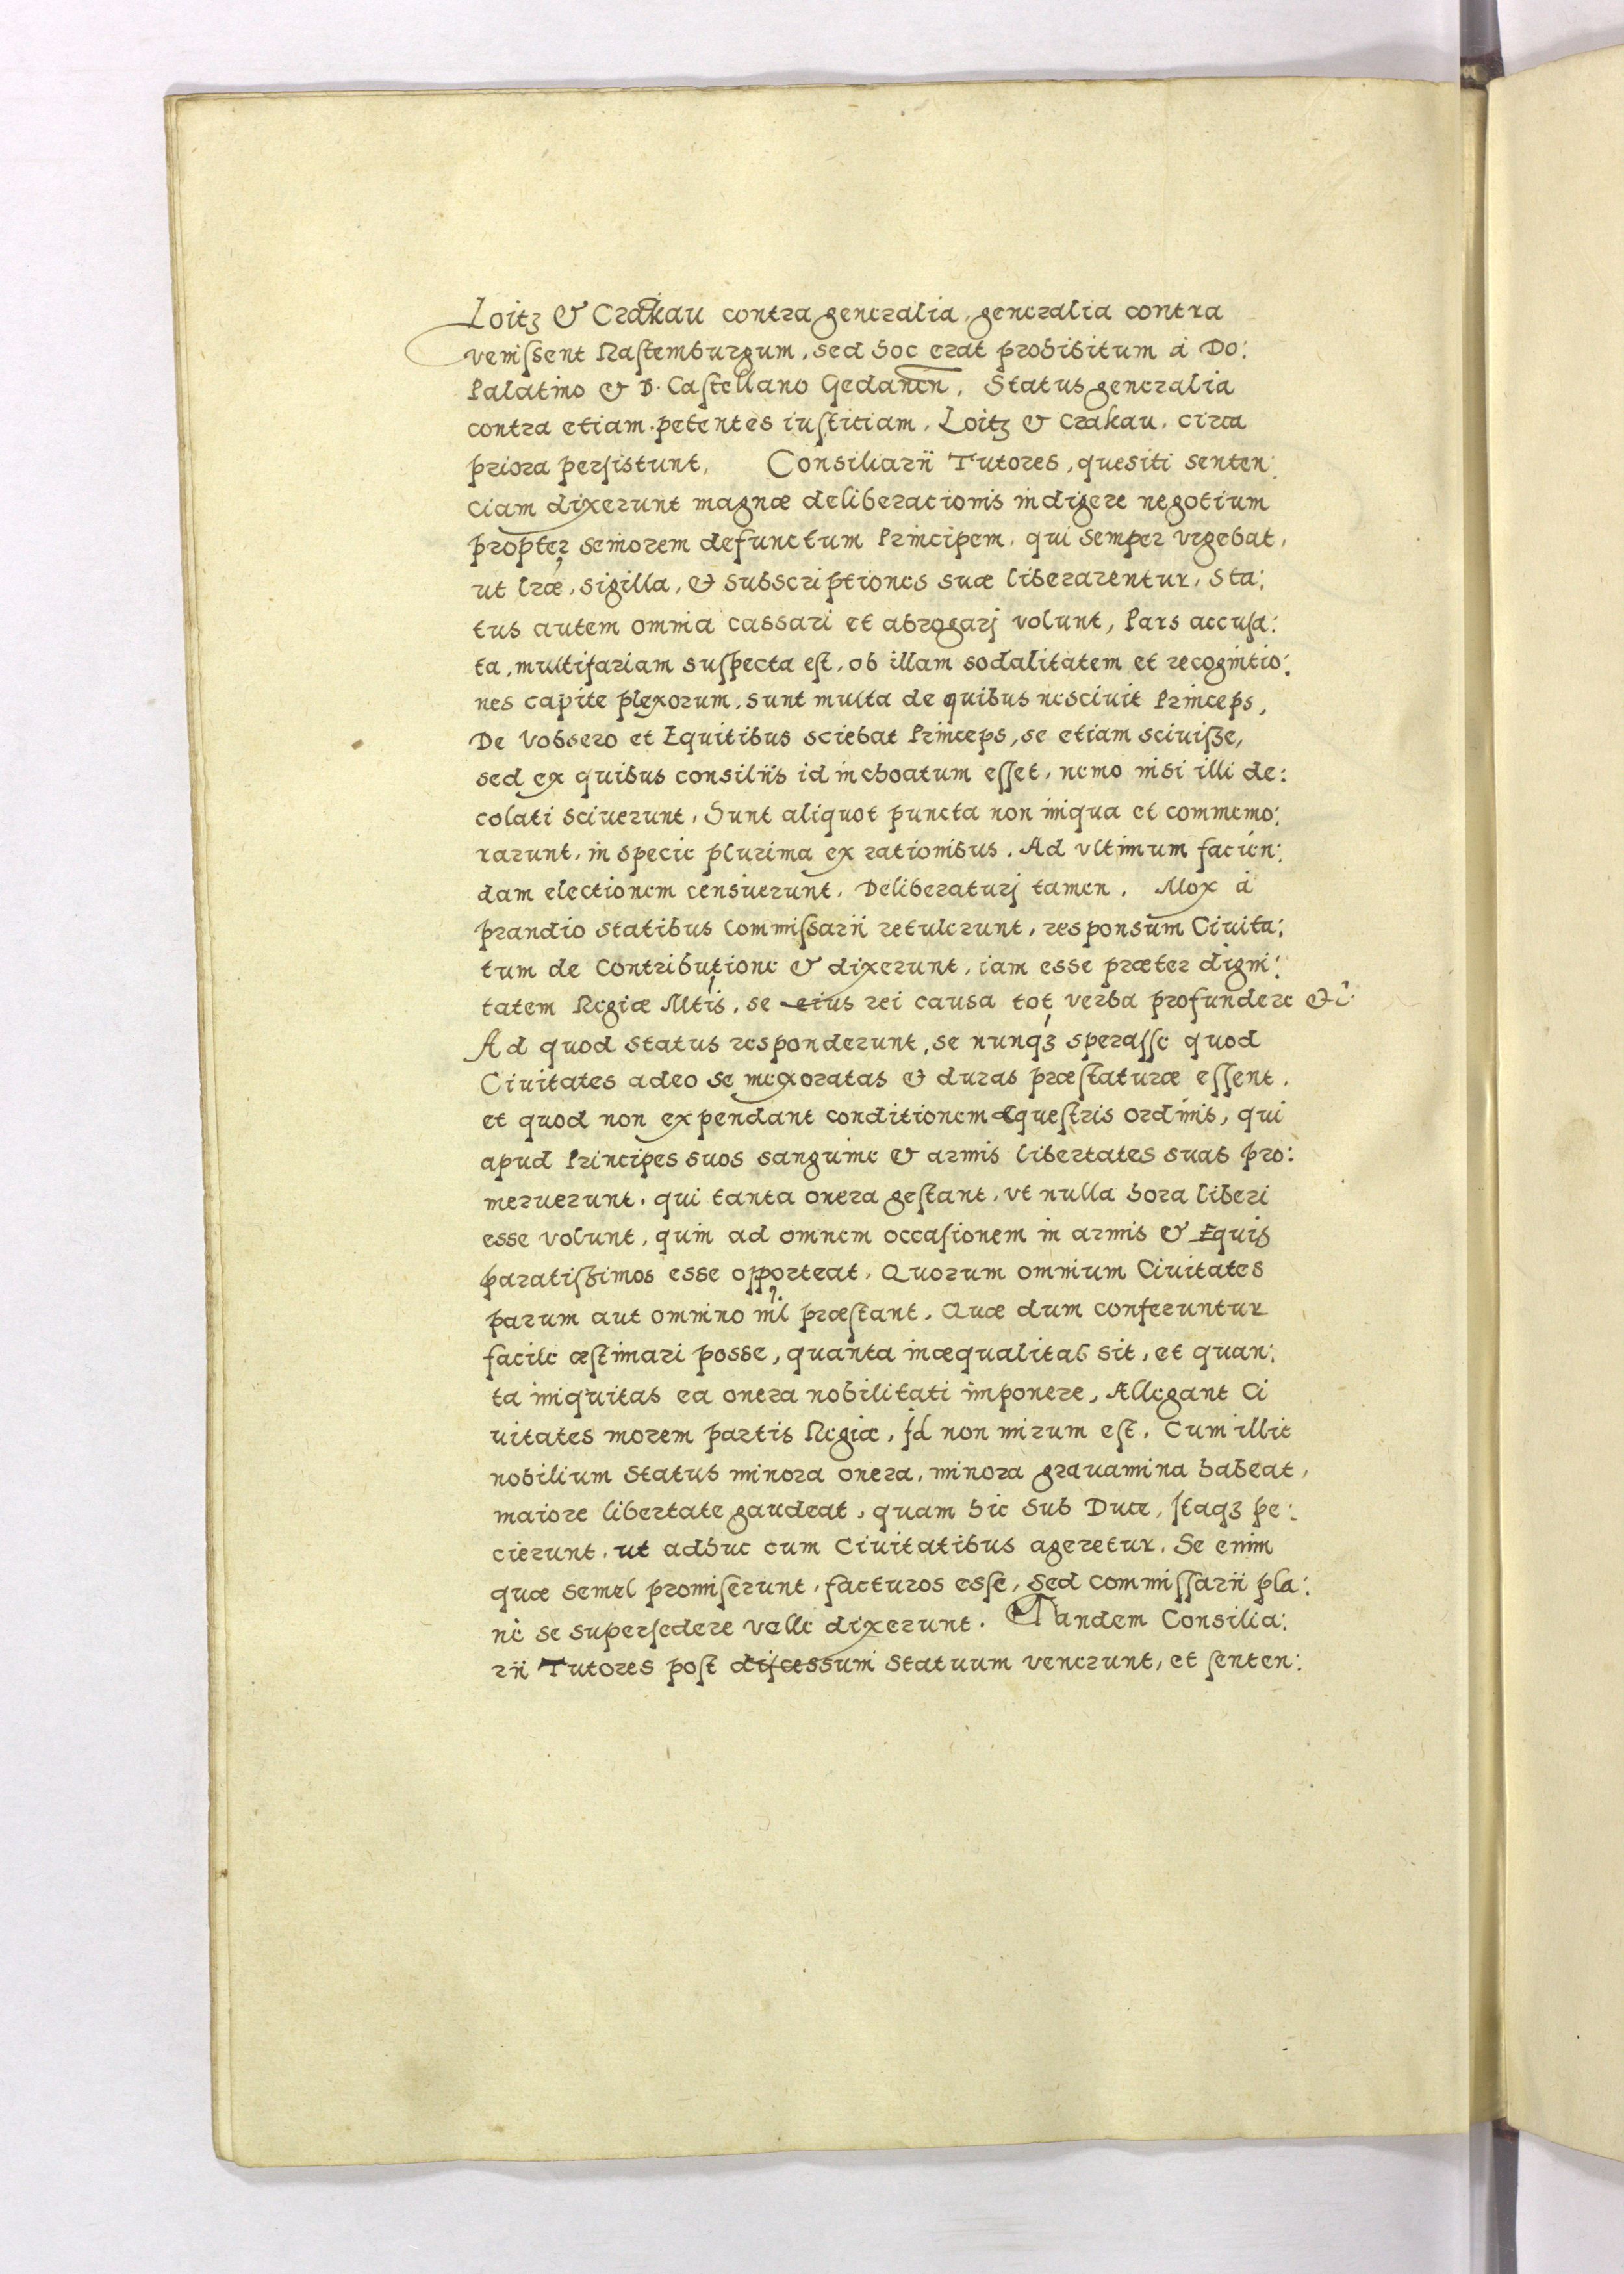 Loitz & Crakau contra generalia, generalia contra
venissent Rastemburgum, sed hoc erat prohibitum à Do:
Palatino & D. Castellano Gedanen, Status generalia
contra etiam petentes iustitiam, Loitz & Crakau, circa
priora persistunt, Consiliarii Tutores, quesiti senten:
ciam dixerunt magnæ deliberacionis indigere negotium
propter seniorem defunctum Principem, qui semper vrgebat,
ut lræ, sigilla, & subscriptiones suæ liberarentur, Sta:
tus autem omnia cassari et abrogarj volunt, Pars accusa:
ta, multifariam suspecta est, ob illam sodalitatem et recognitio:
nes capite plexorum, sunt multa de quibus nesciuit Princeps,
De Vobsero et Equitibus sciebat Princeps, se etiam sciuisse,
sed ex quibus consiliis id inchoatum esset, nemo nisi illi de:
colati sciuerunt, Sunt aliquot puncta non iniqua et commemo:
rarunt, in specie plurima ex rationibus. Ad vltimum facien:
dam electionem censuerunt, Deliberaturj tamen. Mox à
prandio statibus Commissarii retulerunt, responsum Ciuita:
tum de Contributione & dixerunt, iam esse præter digni:
tatem Regiæ Mtis, se eius rei causa tot verba profundere &c
Ad quod status responderunt, se nunqz sperasse quod
Ciuitates adeo se inexoratas & duras præstaturæ essent.
et quod non expendant conditionem equestris ordinis, qui
apud Principes suos sanguine & armis libertates suas pro:
meruerunt, qui tanta onera gestant, vt nulla hora liberi
esse volunt, quin ad omnem occasionem in armis & Equis
paratissimos esse opporteat, Quorum omnium Ciuitates
parum aut omnino nil præstant, Quæ dum conferuntur
facile æstimari posse, quanta inæqualitas sit, et quan:
ta iniquitas ea onera nobilitati imponere, Allegant Ci
uitates morem partis Regiæ, Id non mirum est, Cum illic
nobilium status minora onera, minora grauamina habeat,
maiore libertate gaudeat, quam hic sub Duce, Itaqz pe:
cierunt, ut adhuc cum Ciuitatibus ageretur, Se enim
quæ semel promiserunt, facturos esse, Sed commissarii pla:
ne se supersedere velle dixerunt. Tandem Consilia:
rii Tutores post discessum statuum venerunt, et senten: